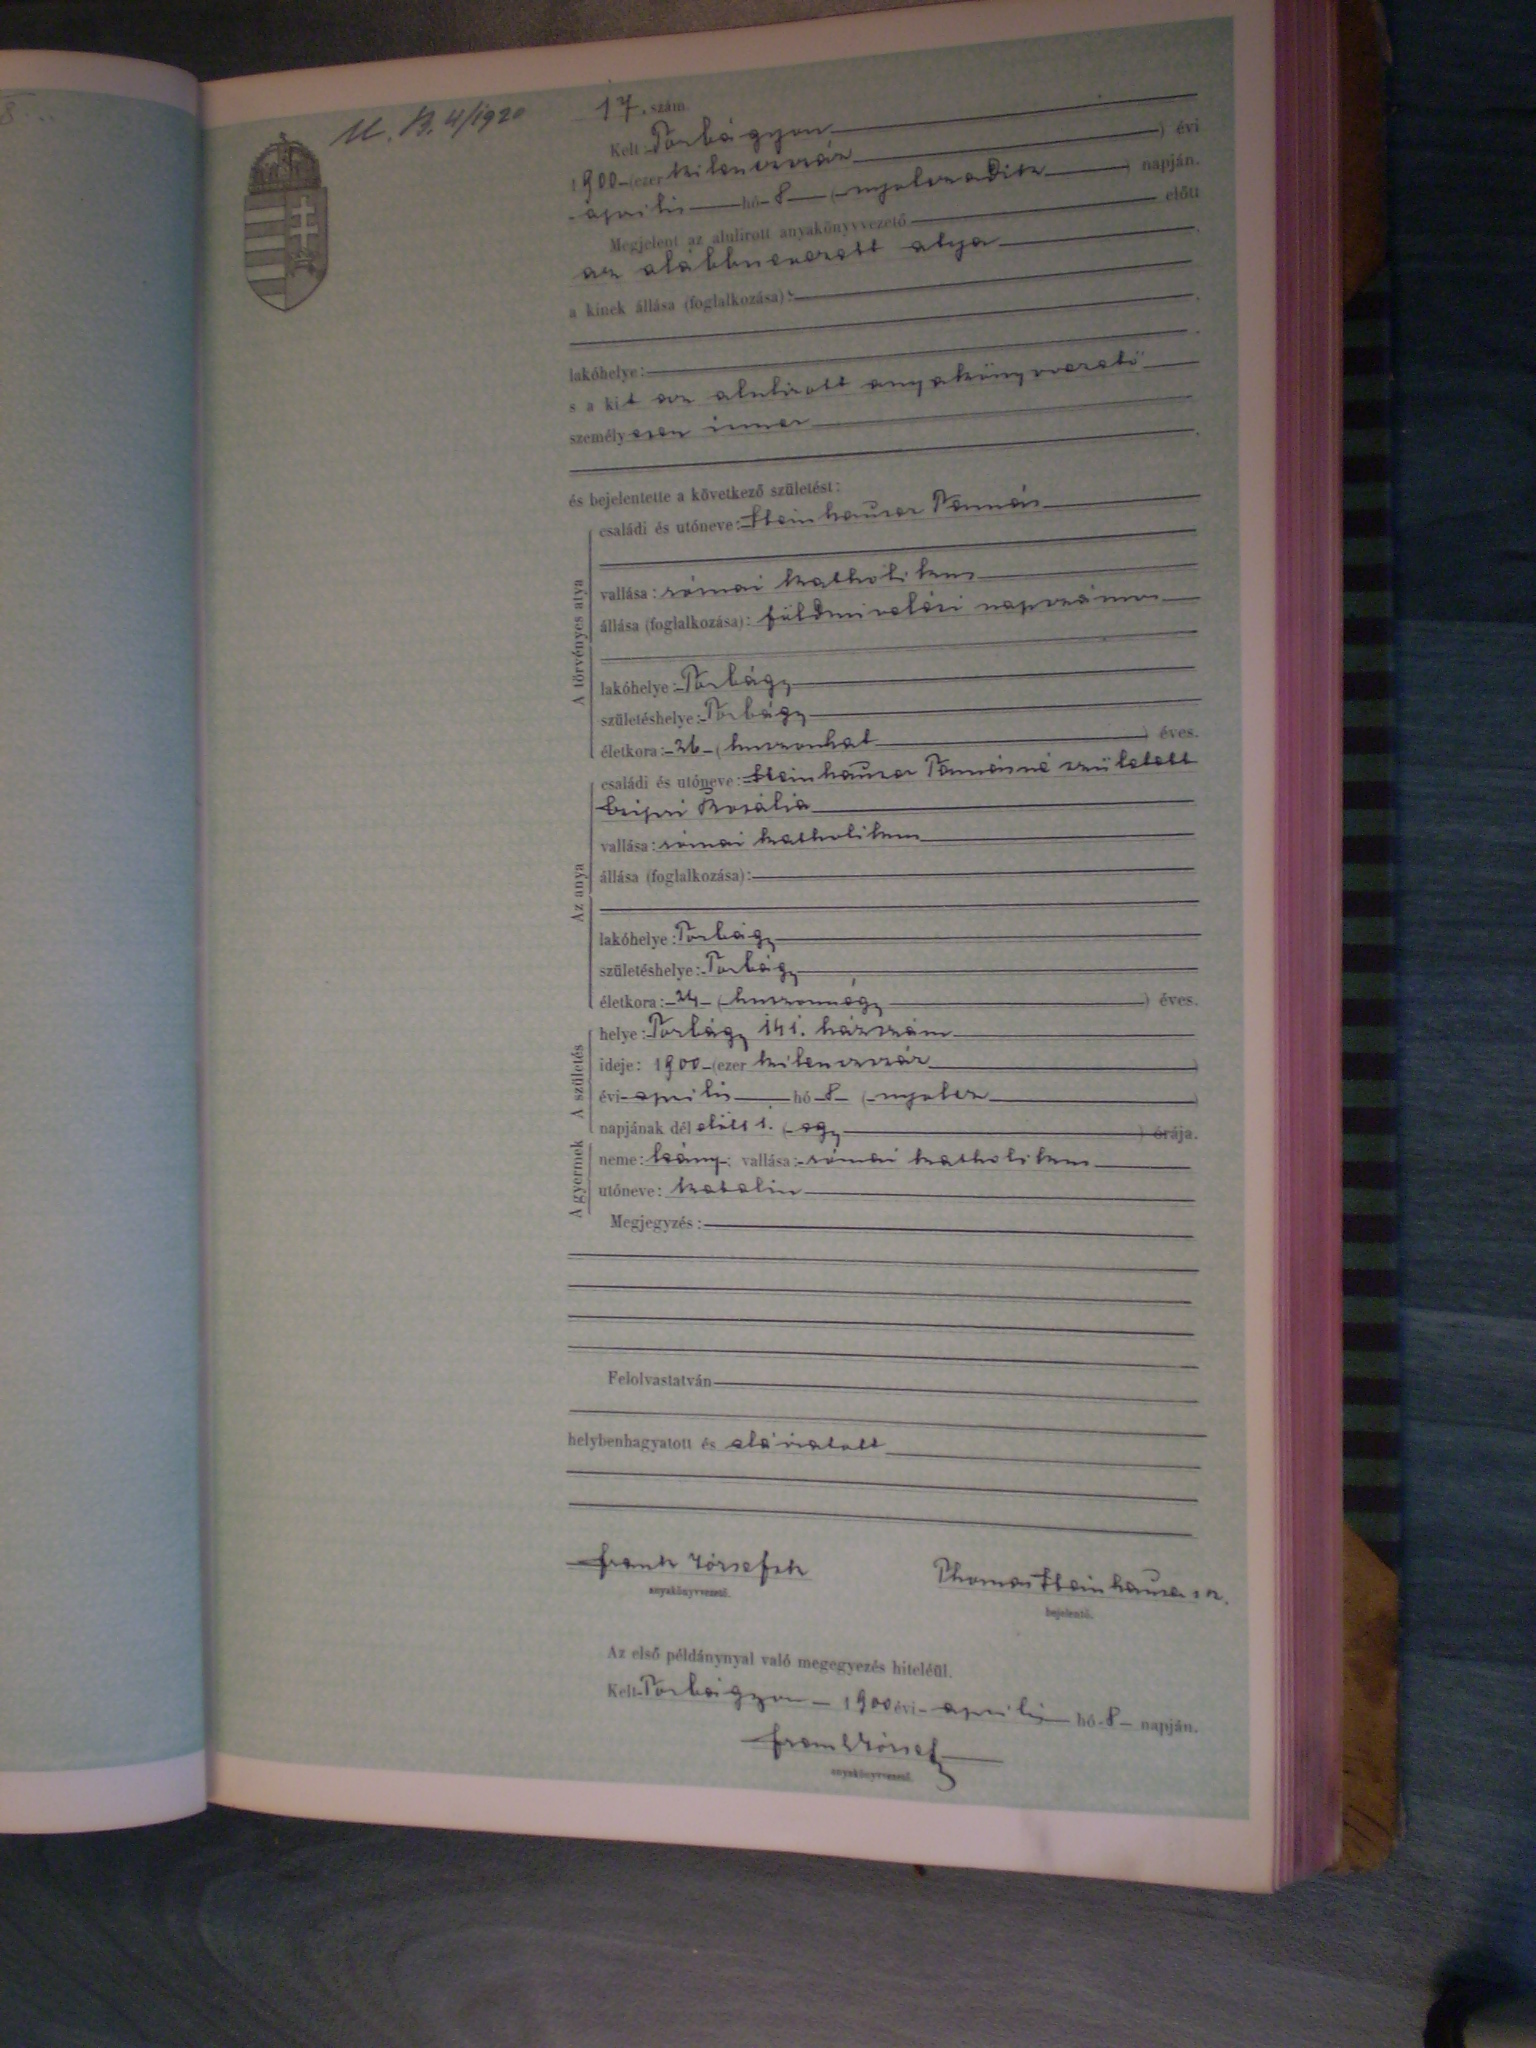 U. B. 4/1920
17. szám.
Kelt Torbágyon
1900 (ezer kilenczszáz ) évi
április hó 8 ( nyolczadik ) napján.
Megjelent az alulirott anyakönyvvezető előtt
az alábbnevezett atya
a kinek állása (foglalkozása):
lakóhelye:
s a kit az alulirott anyakönyvvezető
személyesen ismer
és bejelentette a következő születést:
A törvényes atya
családi és utóneve: Steinhauser Tamás
vallása: római katholikus
állása (foglalkozása): földmivelési napszámos
lakóhelye: Torbágy
születéshelye: Torbágy
életkora: 26 ( huszonhat ) éves.
Az anya
családi és utóneve: Steinhauser Tamásné született
Rozália
vallása: római katholikus
állása (foglalkozása):
lakóhelye: Torbágy
születéshelye: Torbágy
életkora: 24 ( huszonnégy ) éves.
A születés
helye: Torbágy 141. házszám
ideje: 1900 (ezer kilenczszáz )
évi április hó 8 ( nyolcz )
napjának dél előtt 1. ( egy ) órája.
A gyermek
neme: leány; vallása: római katholikus
utóneve: Katalin
Megjegyzés:
Felolvastatván
helybenhagyatott és aláiratott
Frank József sk
Thomas Steinhauser s k.
anyakönyvvezető.
bejelentő.
Az első példánynyal való megegyezés hiteléül.
Kelt Torbágyon 1900 évi április hó 8 napján.
Frank József
anyakönyvvezető.